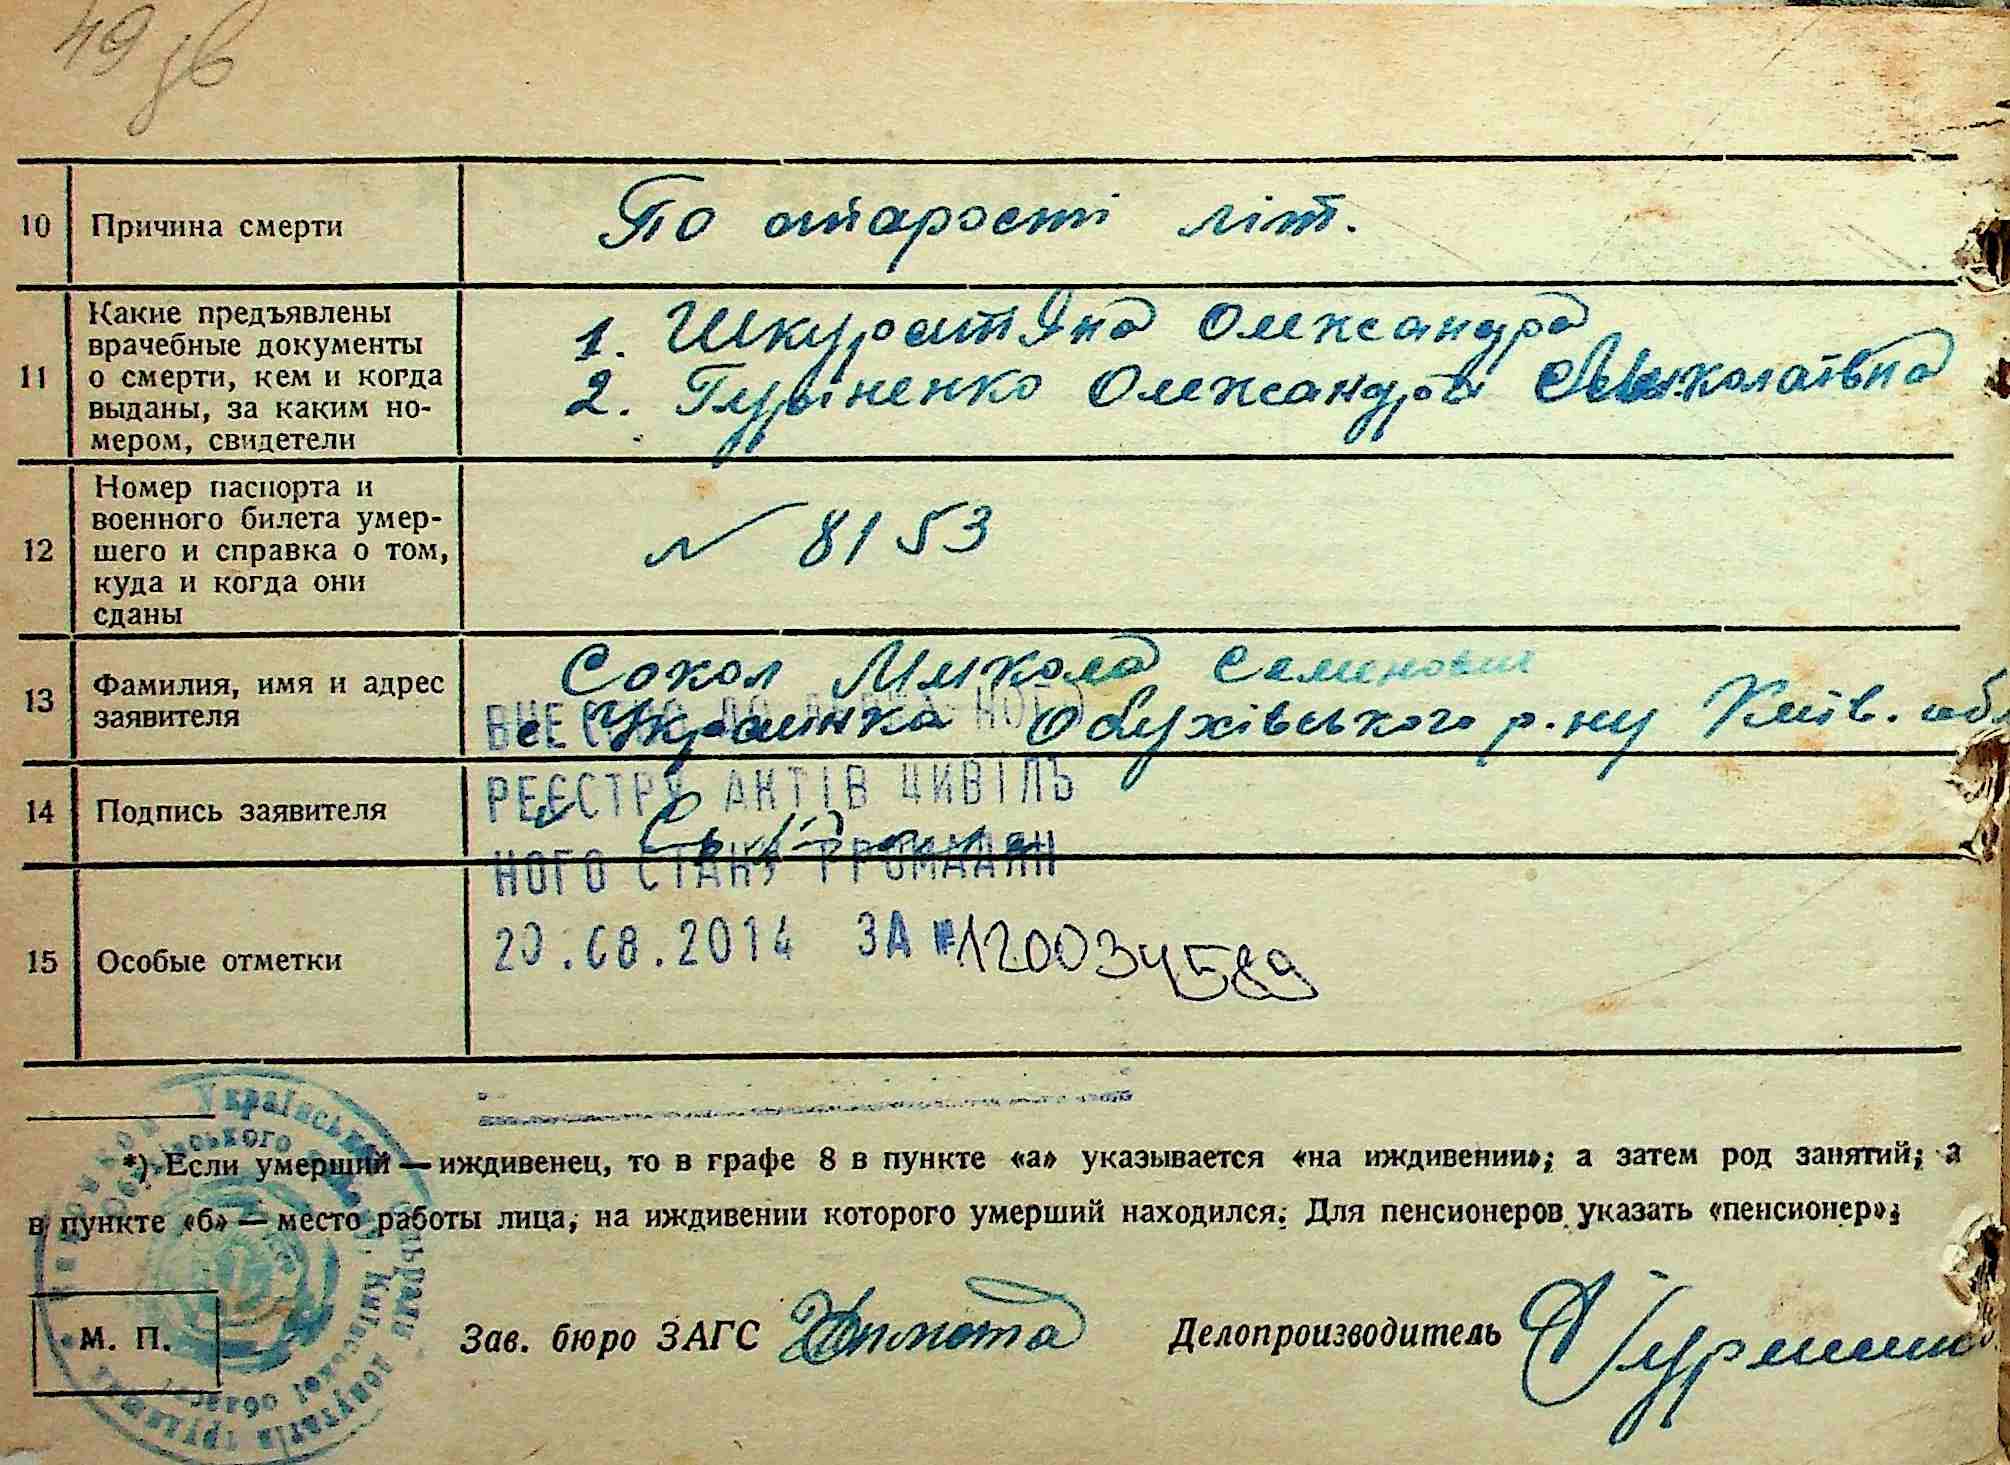 49 зв
10 Причина смерти По старості літ.
11 Какие предъявлены врачебные документы о смерти, кем и когда выданы, за каким но-мером, свидетели
1. Шкурат Яна Олександра
2. Гуріненко Олександра Миколаївна
12 Номер паспорта и военного билета умер-шего и справка о том, куда и когда они сданы
№ 8153
13 Фамилия, имя и адрес заявителя
Сокол Микола Семенович
с. Українка Обухівського р-ну Київ. обл
ВНЕСЕНО ДО ДЕРЖАВНОГО
РЕЄСТРУ АКТІВ ЦИВІЛЬ
14 Подпись заявителя
НОГО СТАНУ ГРОМАДЯН
15 Особые отметки
20.08.2014 ЗА №120034589
*) Если умерший — иждивенец, то в графе 8 в пункте «а» указывается «на иждивении»; а затем род занятий; а
в пункте «б» — место работы лица, на иждивении которого умерший находился. Для пенсионеров указать «пенсионер».
М. П. Зав. бюро ЗАГС Делопроизводитель